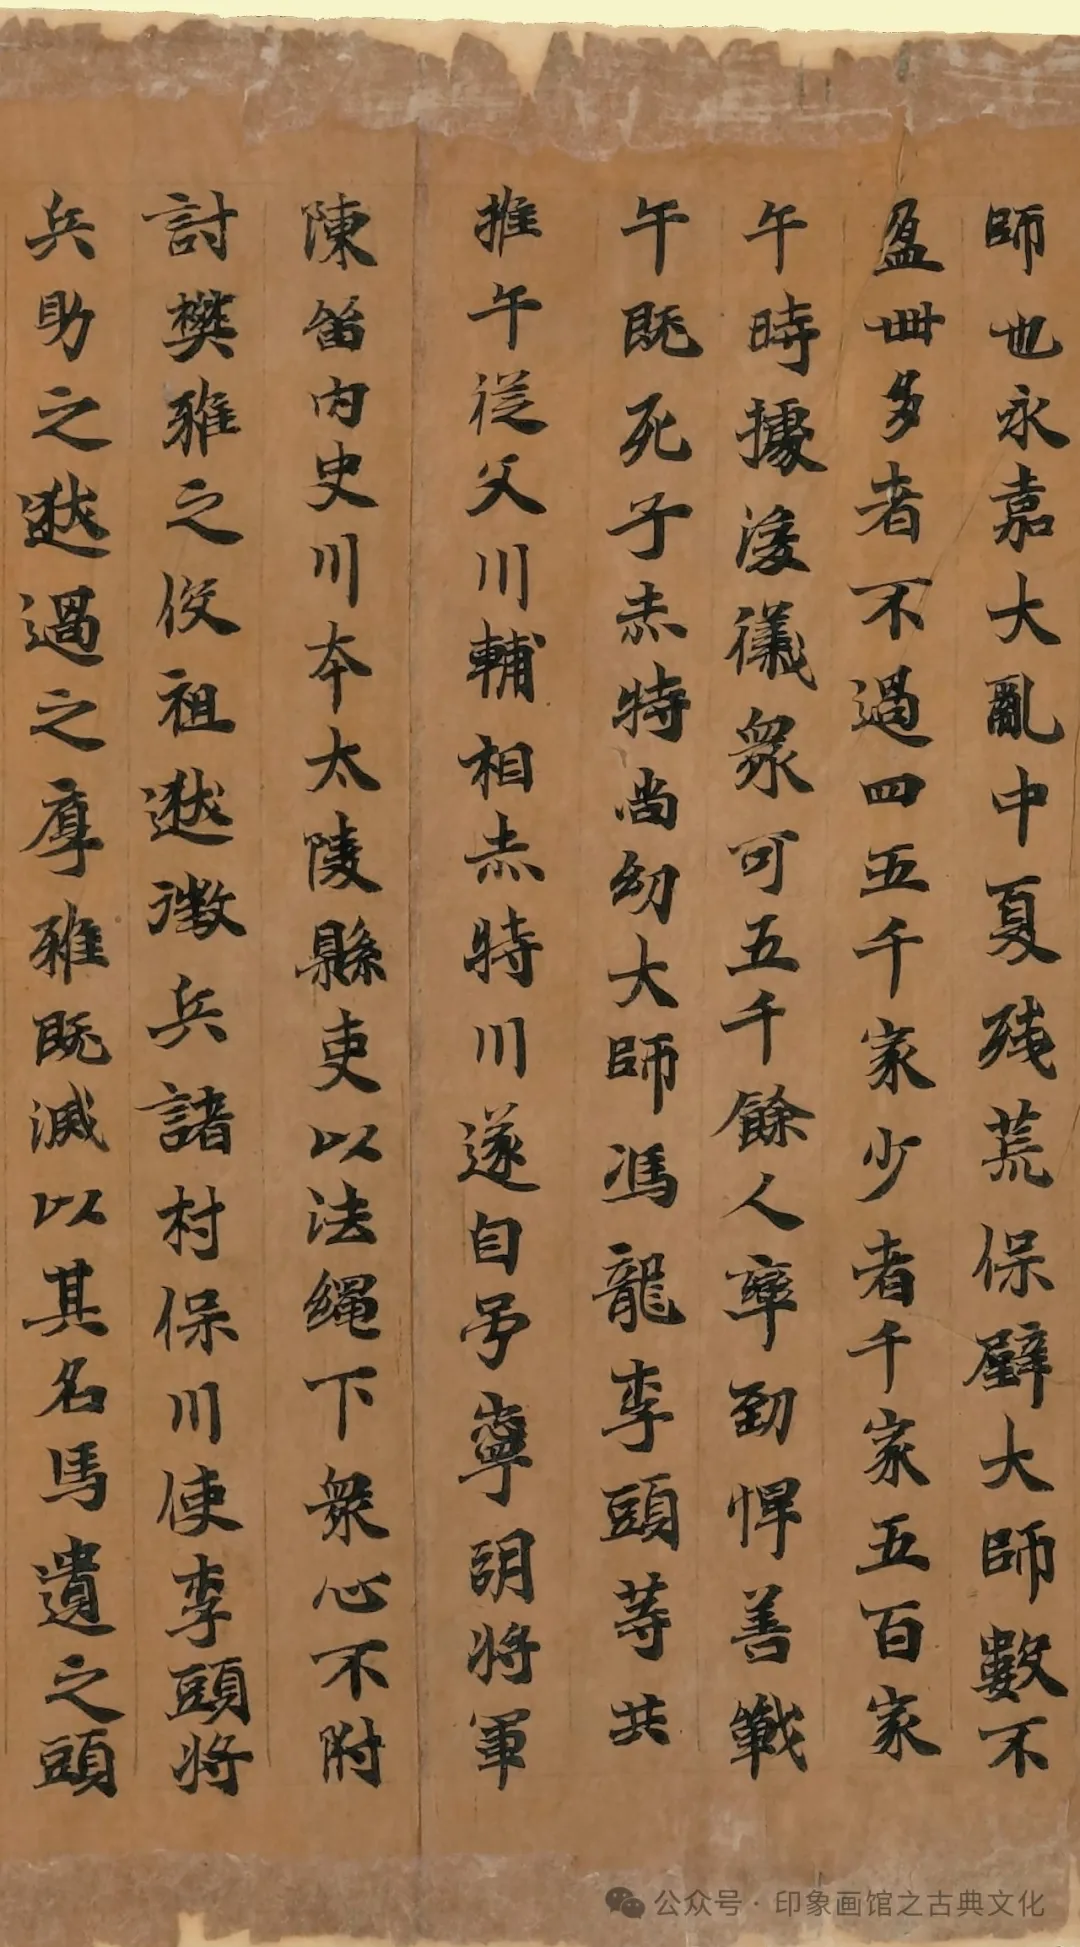 師也永嘉大亂中夏残荒保壁大師數不
盈卌多者不過四五千家少者千家五百家
午時據浚儀衆可五千餘人率勁悍善戰
午既死子赤特尚幼大師馮龍李頭等共
推午從父川輔相赤特川遂自号寧朔将軍
陳留内史川本太陵縣吏以法繩下衆心不附
討樊雅之伇祖逖徵兵諸村保川使李頭将
兵助之逖遇之厚雅既滅以其名馬遺之頭
公众号·印象画馆之古典文化